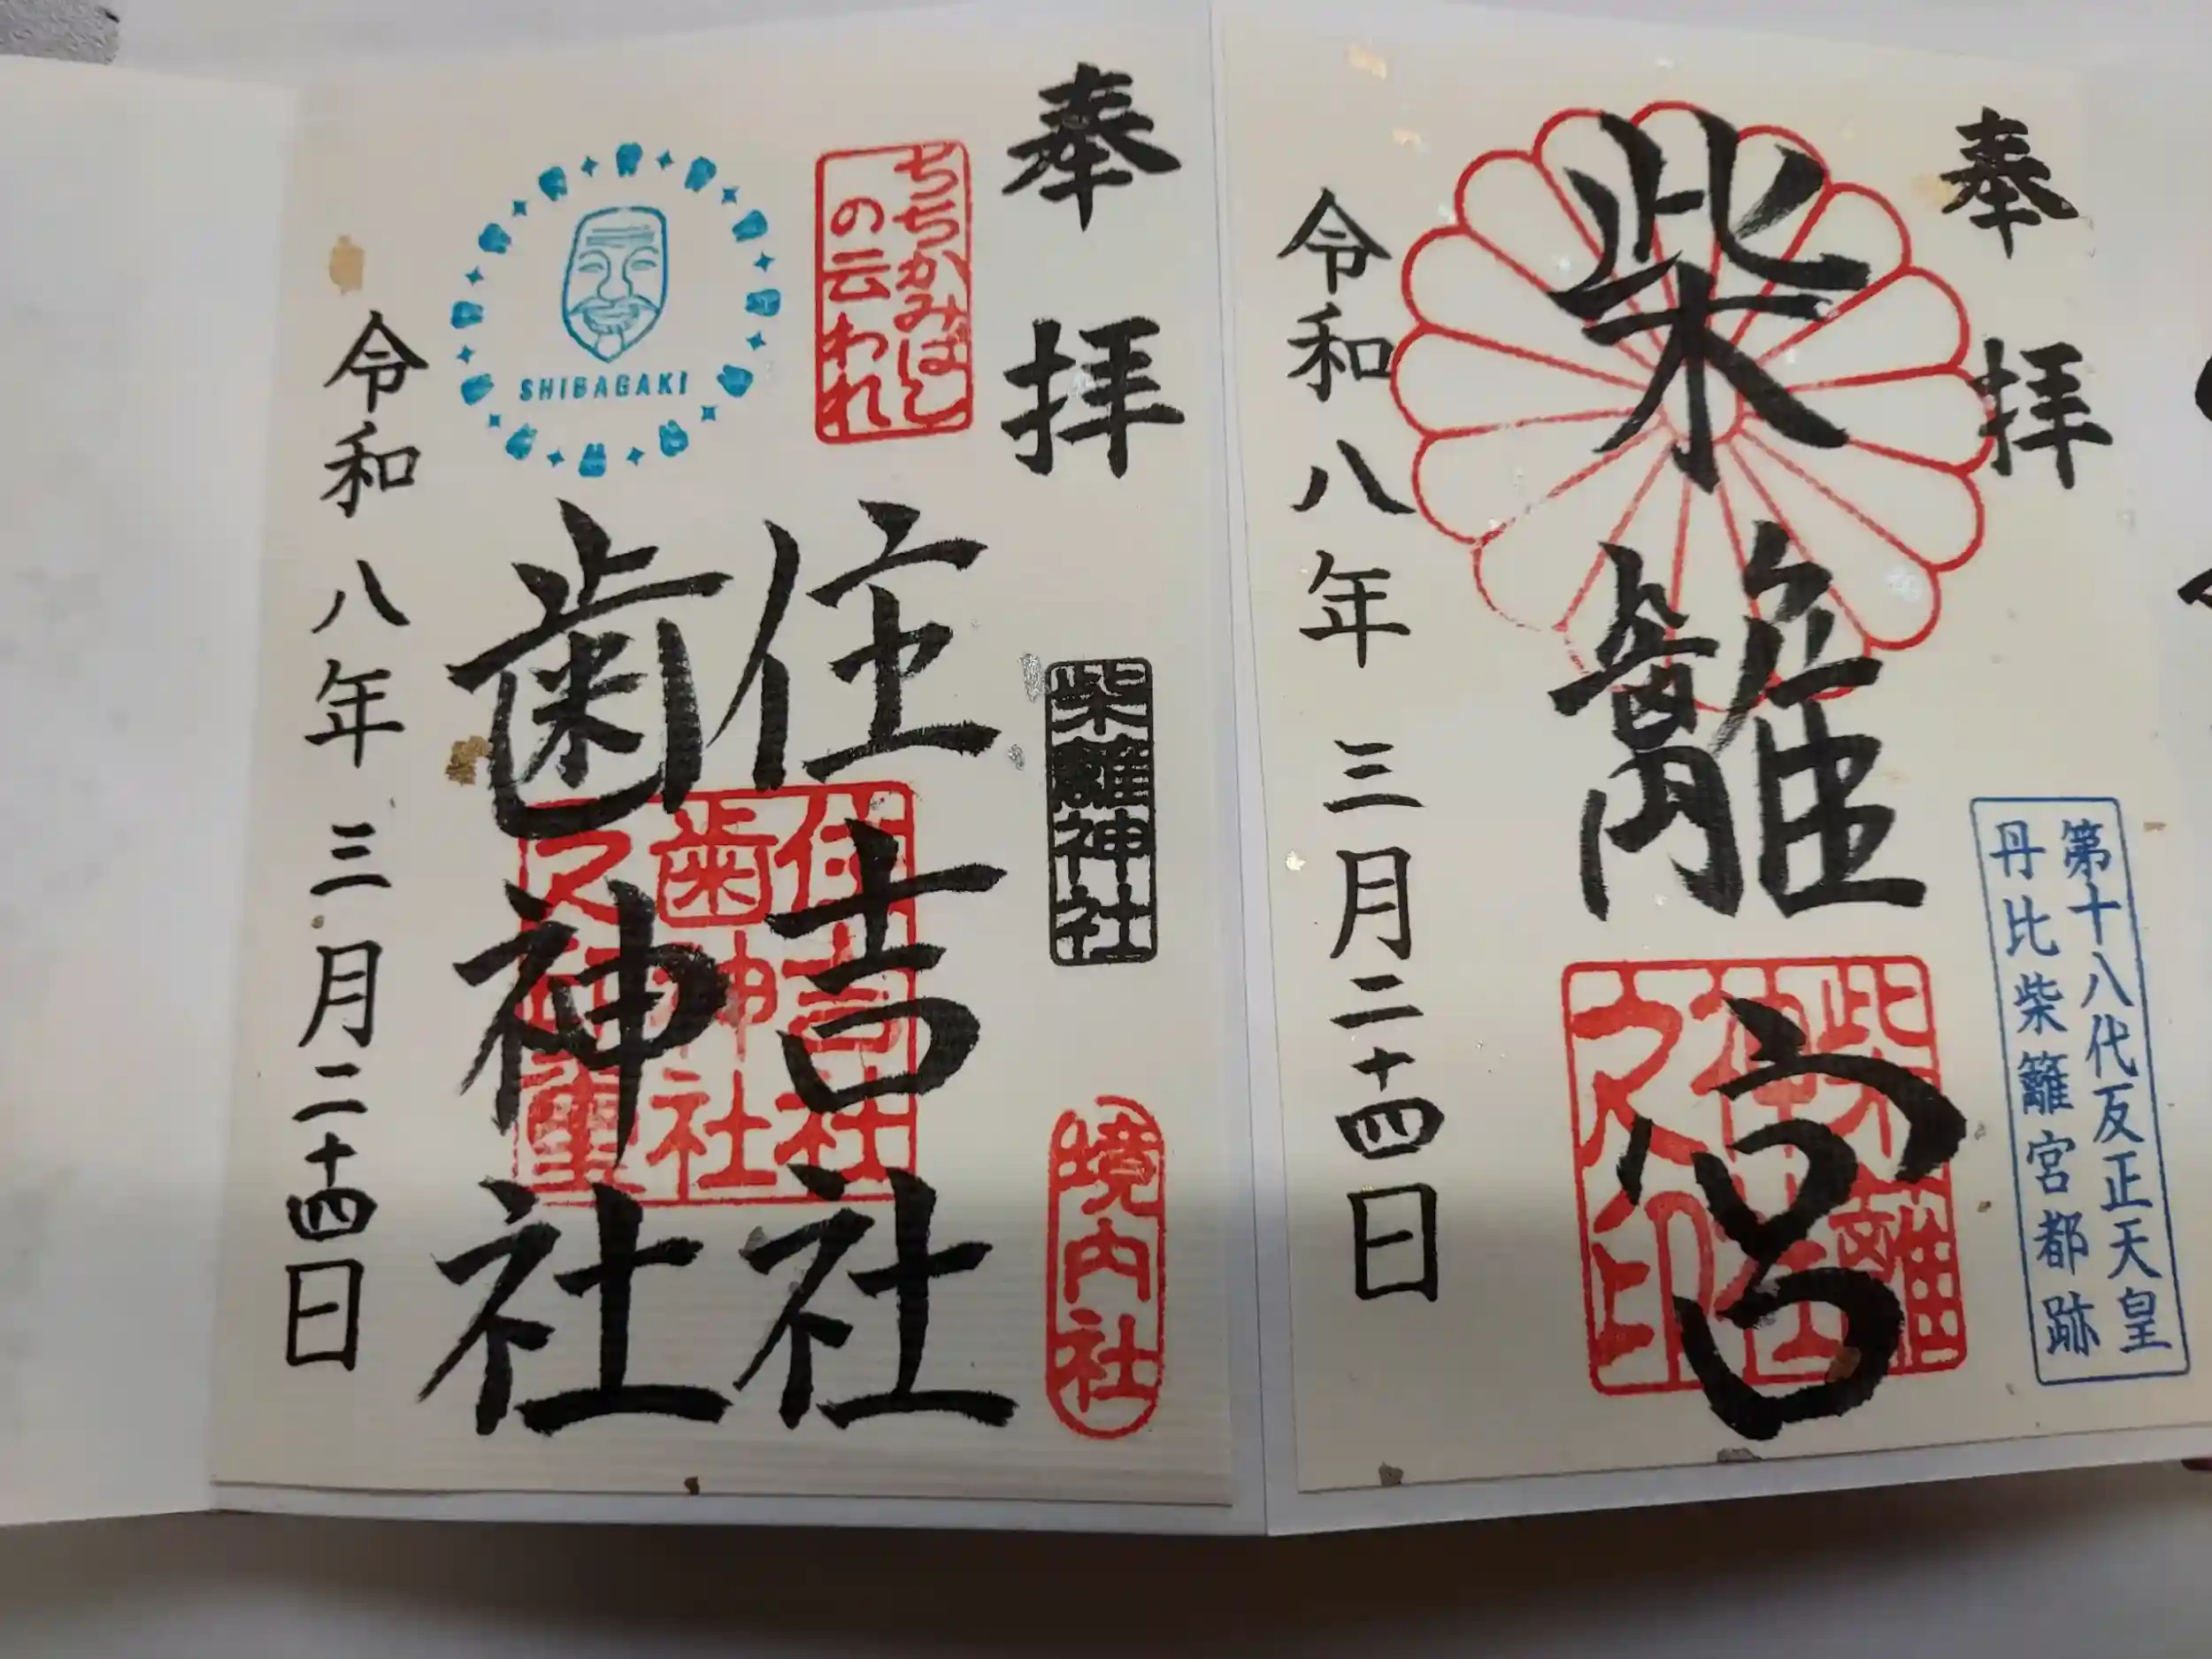 奉拝
柴籬宮
第十八代反正天皇
丹比柴籬宮都跡
令和八年三月二十四日
奉拝
柴籬神社
境内社
の云われ
SHIBAGAKI
住吉社
歯神社
住吉社
歯神社
令和八年三月二十四日